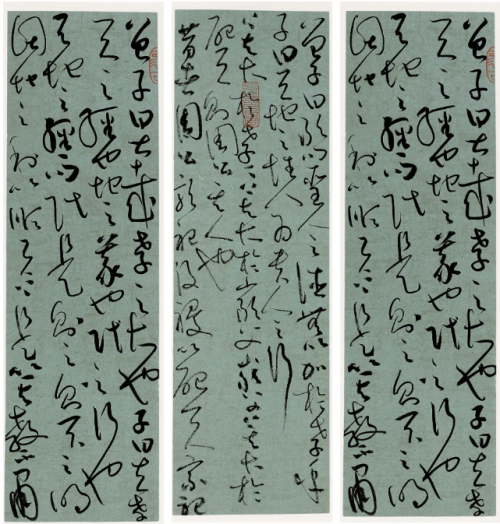 曾子曰甚哉孝之大也子曰夫孝
天之經也地之義也民之行也
天地之經而民是則之則天之明
因地之利以順天下是以其教不肅
曾子曰敢問聖人之德無以加於孝乎
子曰天地之性人為貴人之行
莫大於孝孝莫大於嚴父嚴父莫大於
配天則周公其人也
昔者周公郊祀后稷以配天宗祀
曾子曰甚哉孝之大也子曰夫孝
天之經也地之義也民之行也
天地之經而民是則之則天之明
因地之利以順天下是以其教不肅